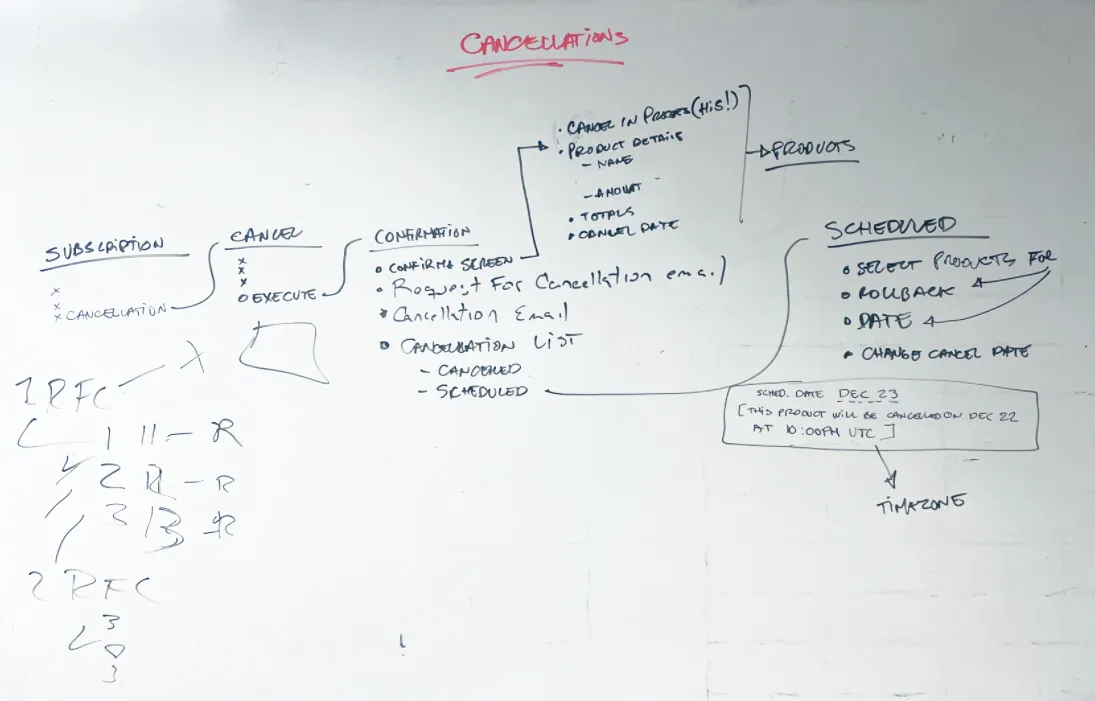 CANCELLATIONS
SUBSCRIPTION
x
x
x CANCELLATION
CANCEL
x
x
x
EXECUTE
CONFIRMATION
• CONFIRMA SCREEN
• Request For Cancellation email
• Cancellation Email
• CANCELLATION LIST
- CANCELLED
- SCHEDULED
• CANCEL IN PROCESS (HiS!)
• PRODUCT DETAILS
- NAME
- AMOUNT
• TOTALS
• CANCEL DATE
PRODUCTS
SCHEDULED
• SELECT PRODUCTS FOR
• ROLLBACK
• DATE
• CHANGE CANCEL DATE
SCHED. DATE DEC 23
[THIS PRODUCT WILL BE CANCELLED ON DEC 22
AT 10:00PM UTC]
TIMAZONE
1 RFC
1 11 - R
2 - R
3 13 - R
2 RFC
3
3